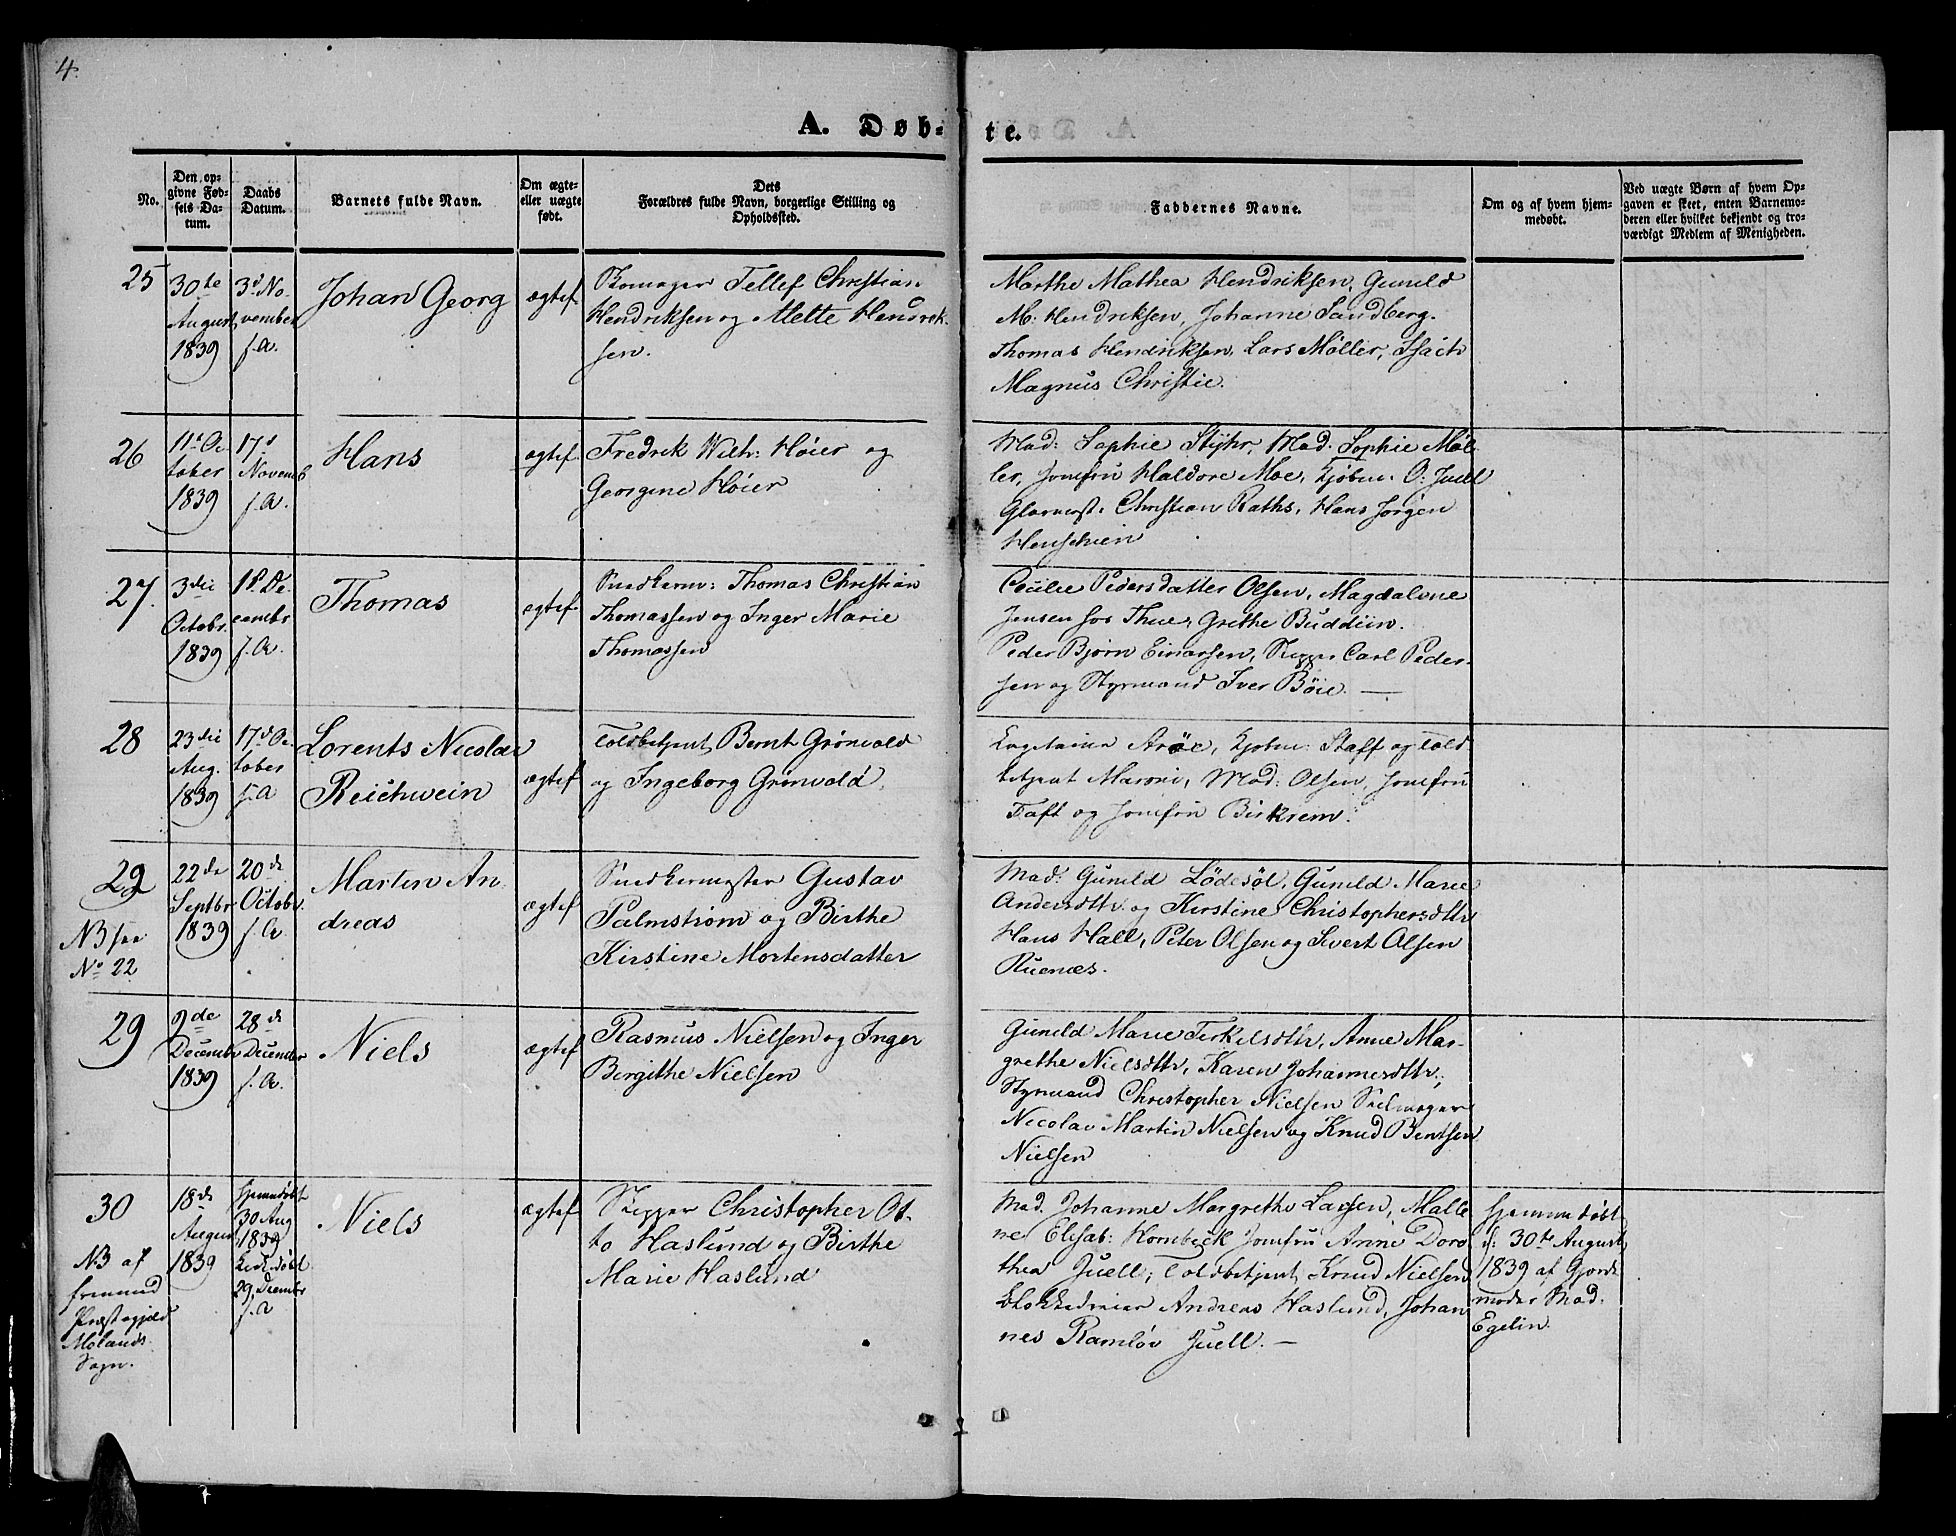 4.
A. Døb-
te.
No.
Den op-
givne Fød-
sels Da-
tum.
Daabs
Datum.
Barnets fulde Navn.
Om ægte-
eller uægte
født.
Dets
Forældres fulde Navn, borgerlige Stilling og
Opholdssted.
Faddernes Navne.
Om og af hvem hjem-
medøbt.
Ved uægte Børn af hvem Op-
gaven er skeet, enten Barnemo-
deren eller hvilket bekjendt og tro-
værdigt Medlem af Menigheden.
25
30te
August
1839
3d No-
vember
f. A.
Johan Georg
ægtef
Skomager Tellef Christian
Hendriksen og Mette Hendrik-
sen.
Marthe Mathea Hendriksen, Gunild
M: Hendriksen, Johanne Sandberg.
Thomas Hendriksen, Lars Møller, Isach
Magnus Christie.
26
11t Oc
tober
1839
17d
Novemb
f. A.
Hans
ægtef
Fredrik Wilh: Høier og
Georgine Høier
Mad: Sophie Stÿhr, Mad. Sophie Møl-
ler, Jomfru Haldore Moe, Kjøbm. O: Juell
Glarmest. Christian Raths, Hans Jørgen
Henschien
27.
3die
Octobr.
1839
1st De
cembr.
f. A.
Thomas
ægtef
Snedkerm: Thomas Christian
Thomassen og Inger Marie
Thomassen
Cecilie Pedersdatter Olsen, Magdalene
Jensen hos Thue, Grethe Buddein.
Peder Bjørn Einarsen, Skipper Carl Peder-
sen og Styrmand Iver Böie. —
28
23die
Aug.
1839
17d Oc
tober
f. A
Lorents Nicolai
Reichwein
ægtef
Toldbetjent Bernt Grønvold
og Ingeborg Grønvold.
Arøe, Kjøbm: Staff og Told
betjent Maroni, Mad: Olsen, Jomfru
Taft og Jomfru Birkrem.
29
NB see
No 22
22de
Septbr
1839
20de
Octobr.
f. A.
Marten An
dreas
ægtef
Snedkermester Gustav
Palmstrøm og Birthe
Kirstine Mortensdatter
Mad: Gunild Lödesøl, Gunild Marie
Andersdttr. og Kirstine Christophersdttr
Hans Hall, Peter Olsen og Sivert Olsen
Ruenæs.
29
9de
Decembr
1839
28de
December
f. A.
Niels
ægtef
Rasmus Nielsen og Inger
Birgithe Nielsen
Gunild Marie Terkelsdttr, Anne Mar-
grethe Nielsdttr, Karen Johannesdttr.,
Styrmand Christopher Nielsen Seilmager
Nicolai Martin Nielsen og Knud Bentsen
Nielsen
30
NB af
fremmed
Præstegjeld
Molands
Sogn.
18de
August
1839
Hjemmdøbt
30 Aug
1839
Kirkedøbt
29 Decembr
f. A
Niels
ægtef
Skipper Christopher Ot-
to Haslund og Birthe
Marie Haslund
Mad. Johanne Margrethe Larsen, Malle
ne Elisab: Hornbeck Jomfru Anne Doro
thea Juell, Toldbetjent Knud Nielsen
Blokkedreier Andreas Haslund, Johan
nes Ramløv Juell. —
Hjemmedøbt
d: 30te August
1839 af Gjorde
moder Mad.
Egelin.